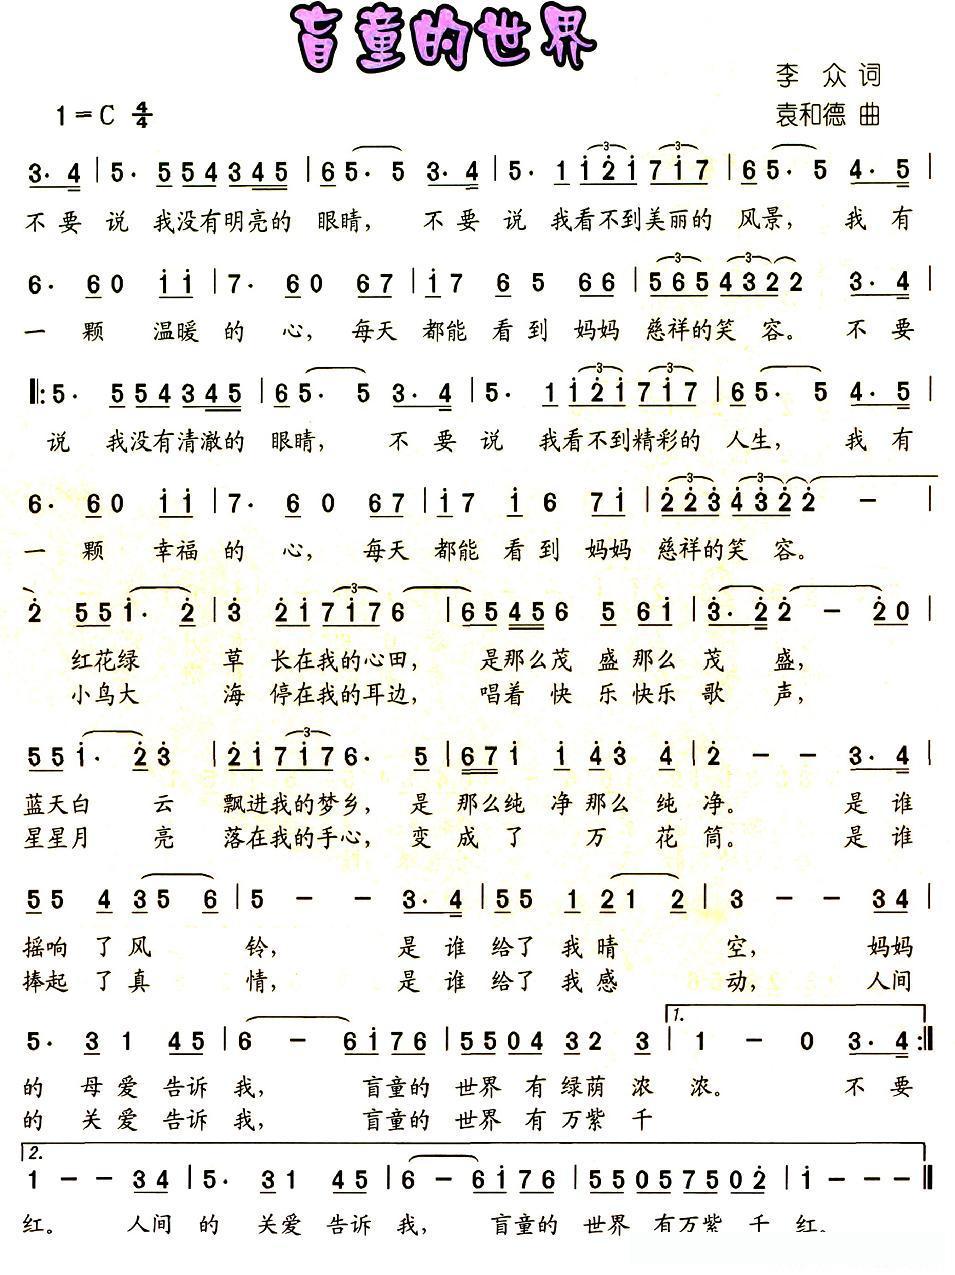 盲童的世界
李 众 词
1=C 4/4 袁和德 曲
3· 4 | 5· 5 5 4 3 4 5 | 6 5· 5 3· 4 | 5· 1 i 2 i 7 i 7 | 6 5· 5 4· 5 |
不 要 说 我没有明亮的 眼睛， 不 要 说 我看不到美丽的 风景， 我 有
6· 6 0 i i | 7· 6 0 6 7 | i 7 6 5 6 6 | 5 6 5 4 3 2 2 3· 4 |
一 颗 温暖 的 心， 每天 都能 看 到 妈妈 慈祥的笑 容。 不 要
‖: 5· 5 5 4 3 4 5 | 6 5· 5 3· 4 | 5· 1 i 2 i 7 i 7 | 6 5· 5 4· 5 |
说 我没有清澈的 眼睛， 不 要 说 我看不到精彩的 人生， 我 有
6· 6 0 i i | 7· 6 0 6 7 | i 7 i 6 7 i | 2 2 3 4 3 2 2 − |
一 颗 幸福 的 心， 每天 都能 看 到 妈妈 慈祥的笑 容。
2 5 5 i· 2 | 3 2 i 7 i 7 6 | 6 5 4 5 6 5 6 i | 3· 2 2 − 2 0 |
红花绿 草 长在我的心田， 是那么茂 盛 那么 茂 盛，
小鸟大 海 停在我的耳边， 唱着 快 乐 快乐 歌 声，
5 5 i· 2 3 | 2 i 7 i 7 6· 5 | 6 7 i i 4 3 4 | 2 − − 3· 4 |
蓝天白 云 飘进我的梦乡， 是 那么纯 净 那么 纯 净。 是 谁
星星月 亮 落在我的手心， 变 成 了 万 花 筒。 是 谁
5 5 4 3 5 6 | 5 − − 3· 4 | 5 5 1 2 1 2 | 3 − − 3 4 |
摇响 了 风 铃， 是 谁 给了 我 晴 空， 妈妈
捧起 了 真 情， 是 谁 给了 我 感 动， 人间
1.
5· 3 1 4 5 | 6 − 6 i 7 6 | 5 5 0 4 3 2 3 | 1 − 0 3· 4 :‖
的 母 爱 告诉 我， 盲童的 世界 有 绿荫 浓 浓。 不 要
的 关 爱 告诉 我， 盲童的 世界 有 万紫 千
2.
1 − − 3 4 | 5· 3 1 4 5 | 6 − 6 i 7 6 | 5 5 0 5 7 5 0 2 | i − − − ‖
红。 人间 的 关爱 告诉 我， 盲童的 世界 有万紫 千 红。